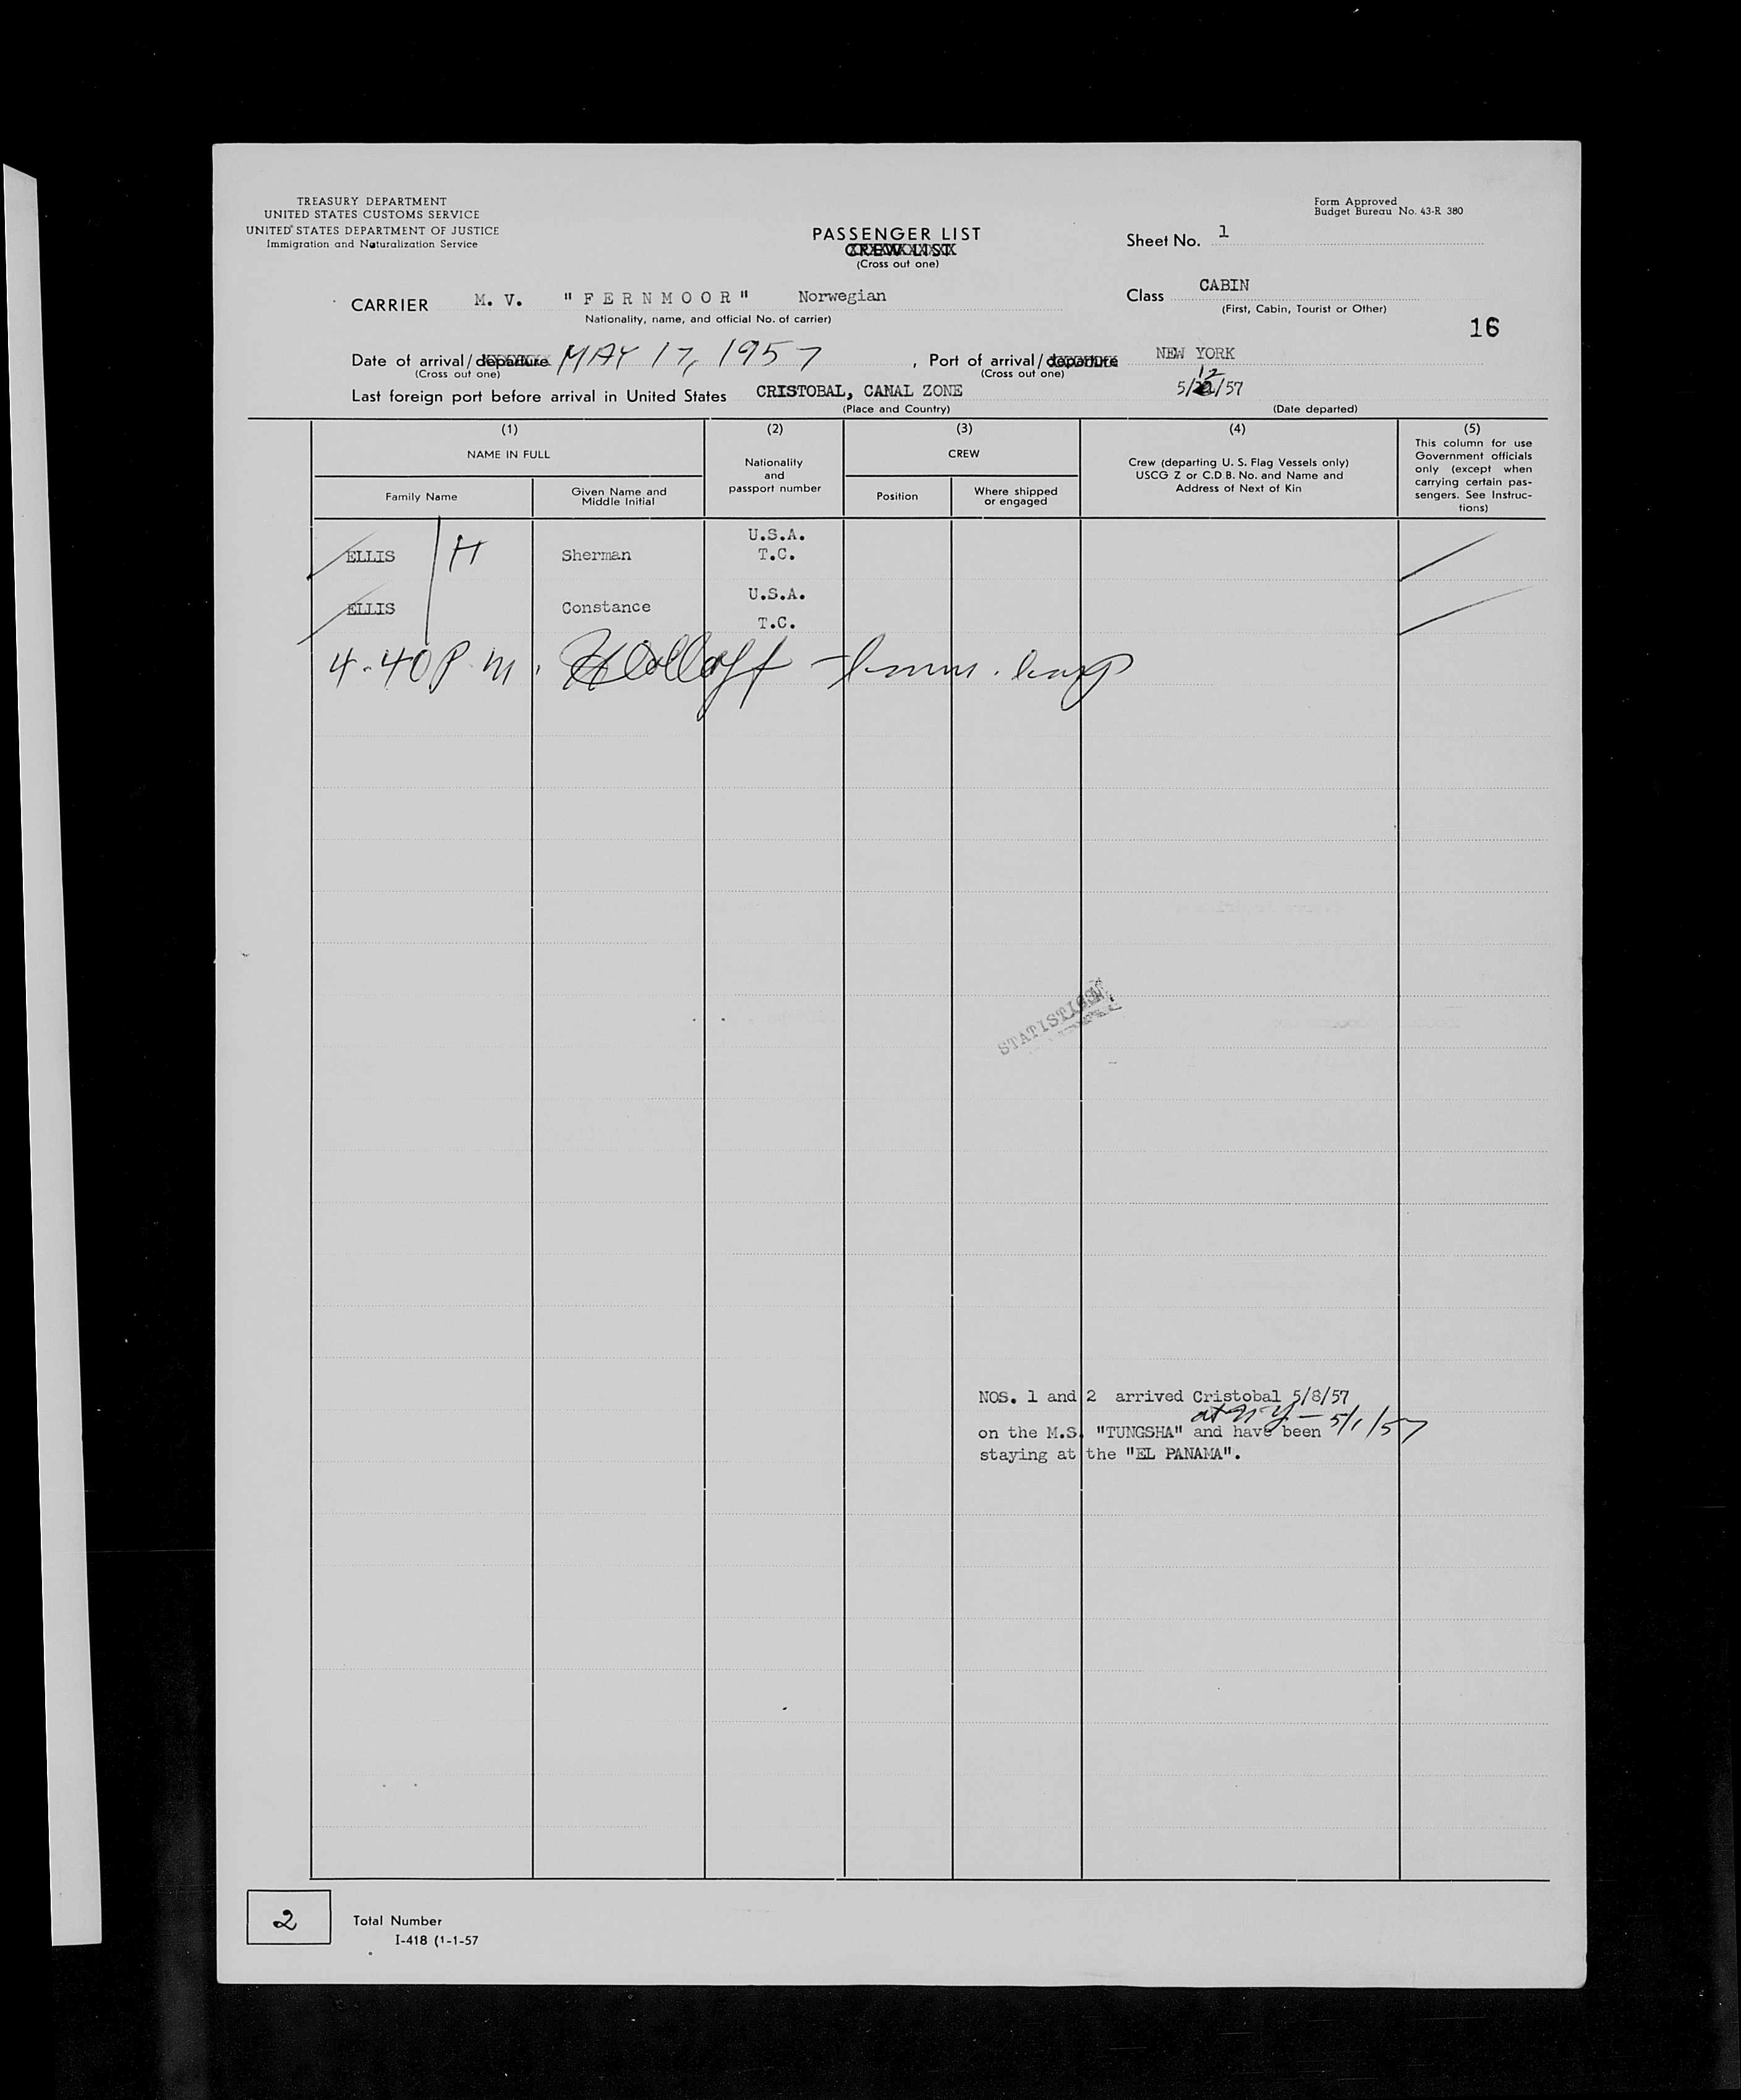 TREASURY DEPARTMENT
UNITED STATES CUSTOMS SERVICE
UNITED STATES DEPARTMENT OF JUSTICE
Immigration and Naturalization Service
Form Approved
Budget Bureau No. 43-R 380
PASSENGER LIST
CREW LIST
(Cross out one)
Sheet No. 1
CARRIER M. V. "FERNMOOR" Norwegian
Nationality, name, and official No. of carrier)
Class CABIN
(First, Cabin, Tourist or Other)
16
Date of arrival/departure MAY 17, 1957, Port of arrival/departure NEW YORK
(Cross out one) (Cross out one)
12
Last foreign port before arrival in United States CRISTOBAL, CANAL ZONE 5/ /57
(Place and Country) (Date departed)
(1) (2) (3) (4) (5)
NAME IN FULL
Family Name
Given Name and
Middle Initial
Nationality
and
passport number
CREW
Position
Where shipped
or engaged
Crew (departing U. S. Flag Vessels only)
USCG Z or C.D B. No. and Name and
Address of Next of Kin
This column for use
Government officials
only (except when
carrying certain pas-
sengers. See Instruc-
tions)
U.S.A.
ELLIS H Sherman T.C.
U.S.A.
ELLIS Constance
T.C.
4.40 P.m.
STATISTICAL
NOS. 1 and 2 arrived Cristobal 5/8/57
at N.Y. - 5/1/57
on the M.S. "TUNGSHA" and have been
staying at the "EL PANAMA".
2
Total Number
I-418 (1-1-57